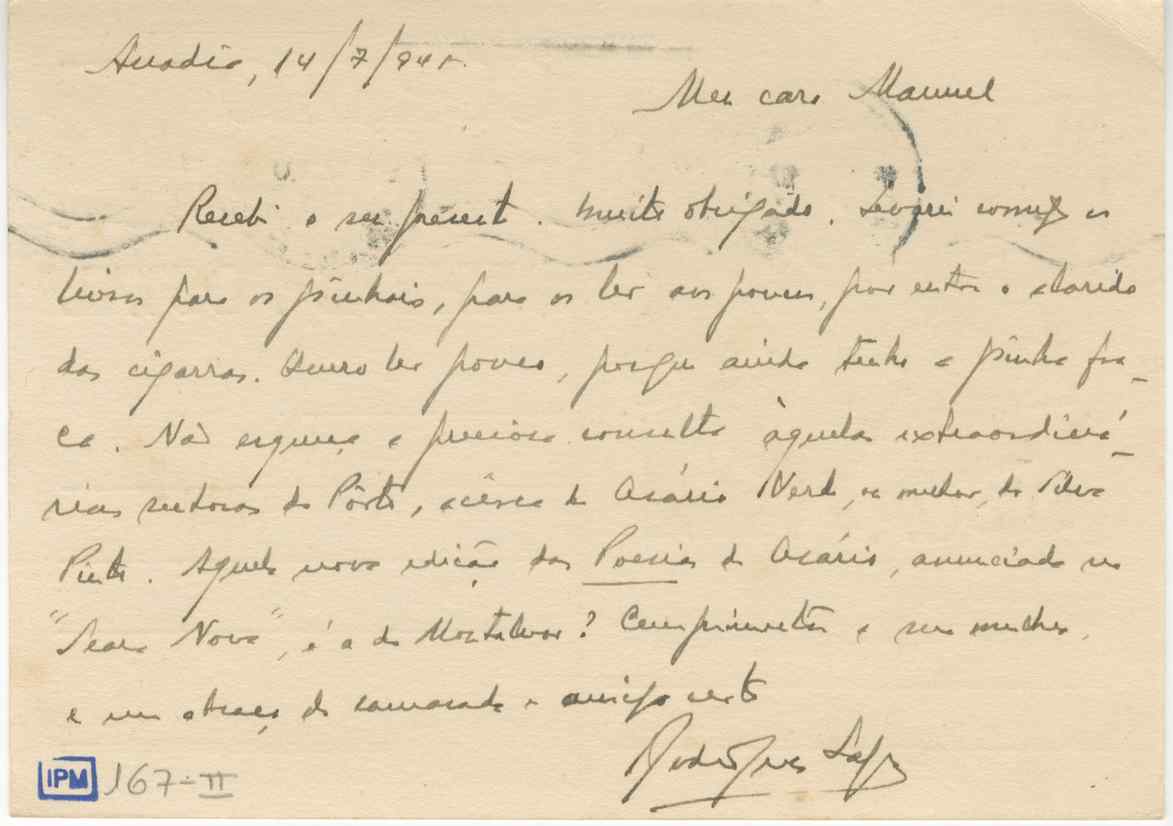 Anadia, 14/7/941.
Meu caro Manuel
Recebi o seu presente. Muito obrigado. Levarei comigo os
livros para os pinhais, para os ler aos poucos, por entre o alarido
das cigarras. Quero ler pouco, porque ainda tenho a pinha fra-
ca. Não esqueça a preciosa consulta àquelas extraordiná-
rias senhoras do Pôrto, acêrca de Cesário Verde, ou melhor, do Silva
Pinto. Aquela nova edição das Poesias de Cesário, anunciada na
"Seara Nova", é a do Montalvor? Cumprimentos a sua mulher,
e um abraço do camarada e amigo certo
Rodrigues Lapa
IPM 167-II